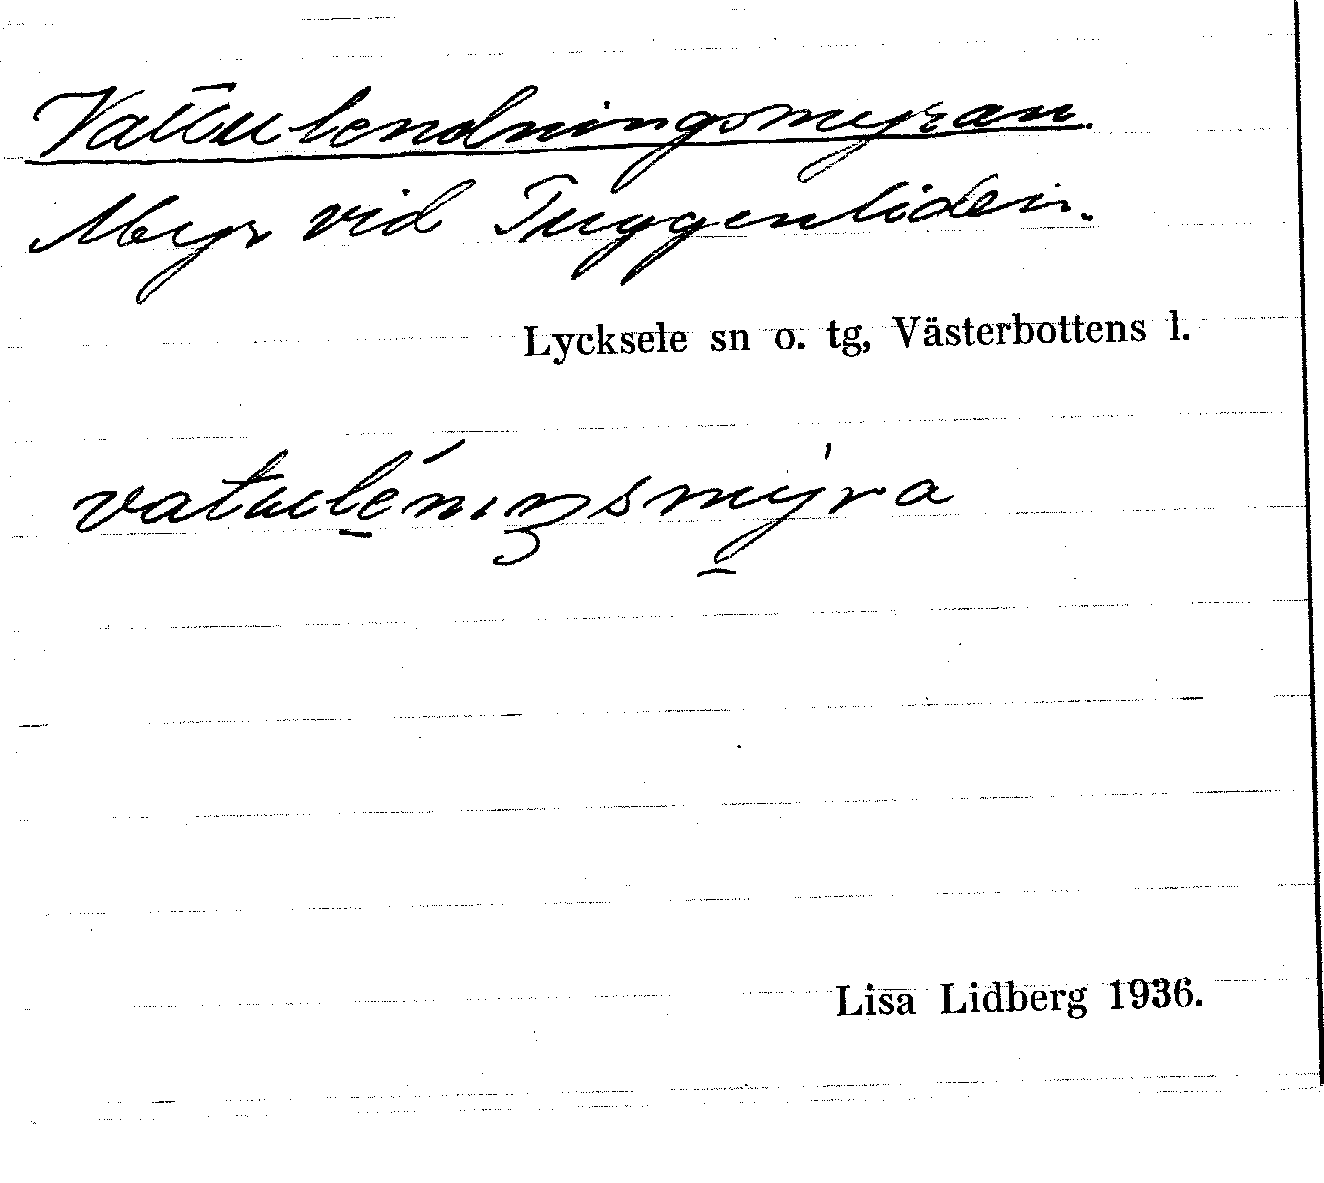 Vattulendningsmyran.
Myr vid Tuggenliden.
Lycksele sn o. tg, Västerbottens l.
vatulénıŋsmýra
Lisa Lidberg 1936.